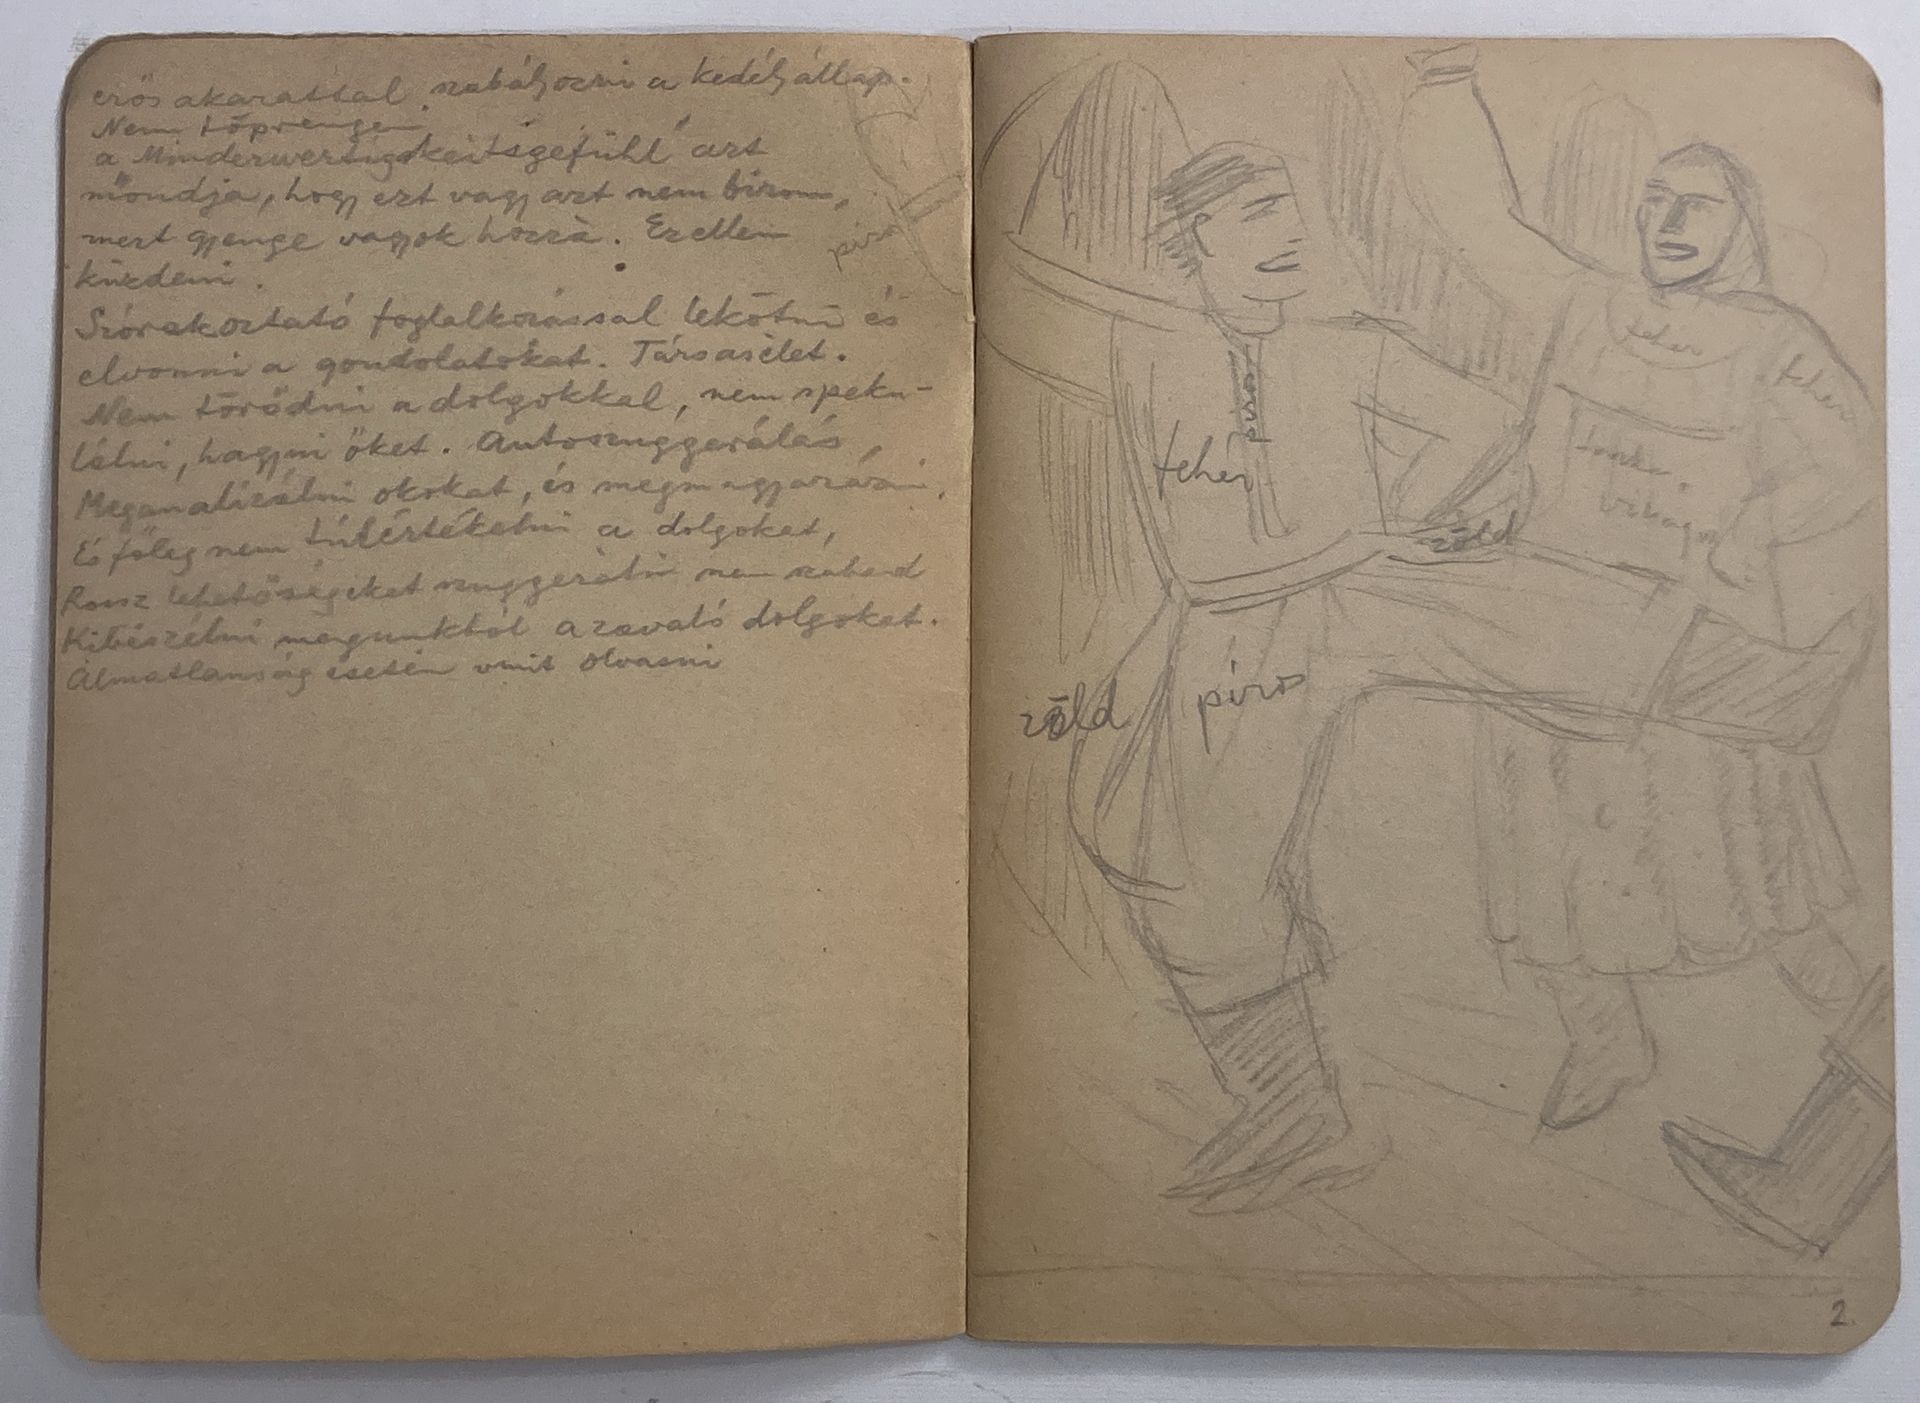 erős akarattal szabályozni a kedélyállap.
Nem töprengeni
a Minderwertigkeitsgefühl azt
mondja, hogy ezt vagy azt nem birom,
mert gyenge vagyok hozzá. Ez ellen
küzdeni.
Szórakoztató foglalkozással lekötni és
elvonni a gondolatokat. Társasélet.
Nem törődni a dolgokkal, nem speku-
lálni, hagyni őket. Autoszuggerálás,
Meganalizálni okokat, és megmagyarázni.
És főleg nem túlértékelni a dolgokat,
Rossz lehetőségeket szuggerálni nem szabad
Kibeszélni magunkból a zavaró dolgokat.
Álmatlanság esetén vmit olvasni
piros
piros
fehér
fehér
fehér
virágos
zöld
zöld
piros
2